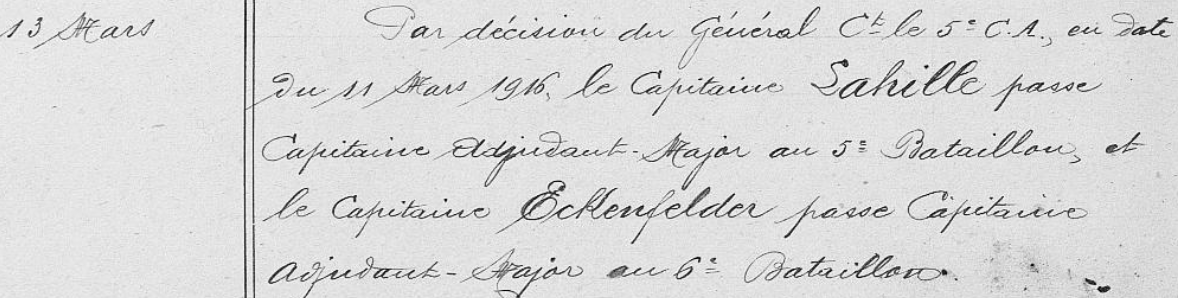 13 Mars
Par décision du Général Ct le 5e C.A., en date
du 11 Mars 1916, le Capitaine Lahille passe
Capitaine Adjudant-Major au 5e Bataillon, et
le Capitaine Ecklenfelder passe Capitaine
adjudant-Major au 6e Bataillon.